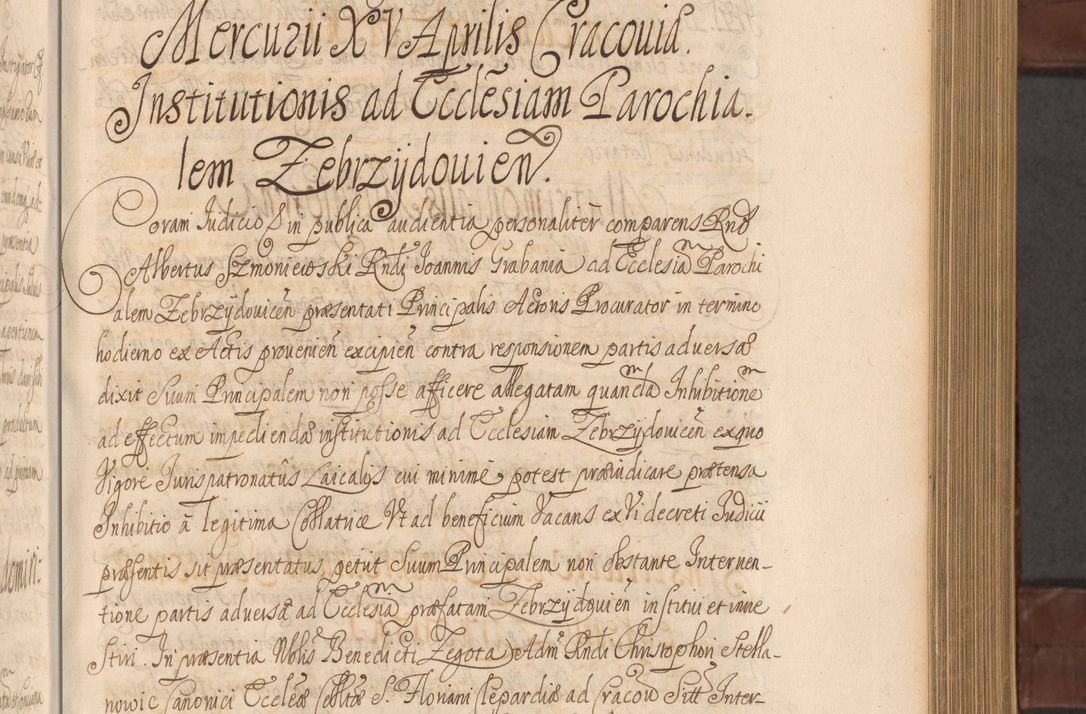 Mercurii XV Aprilis Cracovia.
Institutionis ad Ecclesiam Parochia.
lem Zebrzÿdovien̄.
Coram Iudicio & in publica audientia personaliter comparens Rnd
Albertus Szmoniewski Rndi Joannis Grabania ad Ecclesiam Parochi
alem Zebrzÿdovicen̄ præsentati Principalis Actoris Procurator in termino
hodierno ex Actis provenien̄ excipien̄ contra responsionem partis adversæ
dixit Suum Principalem non posse afficere allegatam quandam Inhibitionem
ad effectum impediendæ institutionis ad Ecclesiam Zebrzÿdovicen̄ exquo
Vigore Jurispatronatus Laicalÿs cui minimè potest præiudicare prætensa
Inhibitio à legitima Collatrice Vt ad beneficium Vacans ex Vi decreti Iudicii
præsentis sit præsentatus, petit Suum Principalem non obstante Interven-
tione partis adversæ ad Ecclesiam præfatam Zebrzÿdovien̄ institui et inve
stiri. In præsentia Nblis Benedicti Zegota Adm̄ Rndi Christophori Stella-
nowic Canonici Ecclēæ Collt̄æ S. Floriani Clepardiæ ad Cracov̄ Siti Inter-